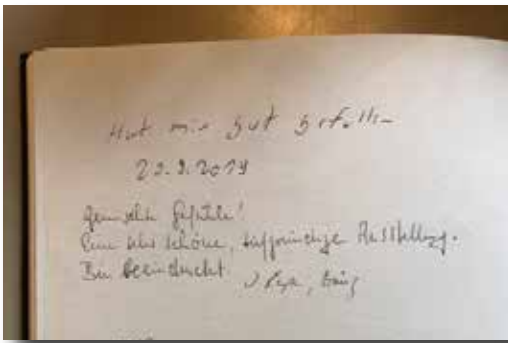 Hat mir gut gefallen
29.9.2019
Gemischte Gefühle!
Eine sehr schöne, tiefgründige Ausstellung.
Bin beeindruckt.